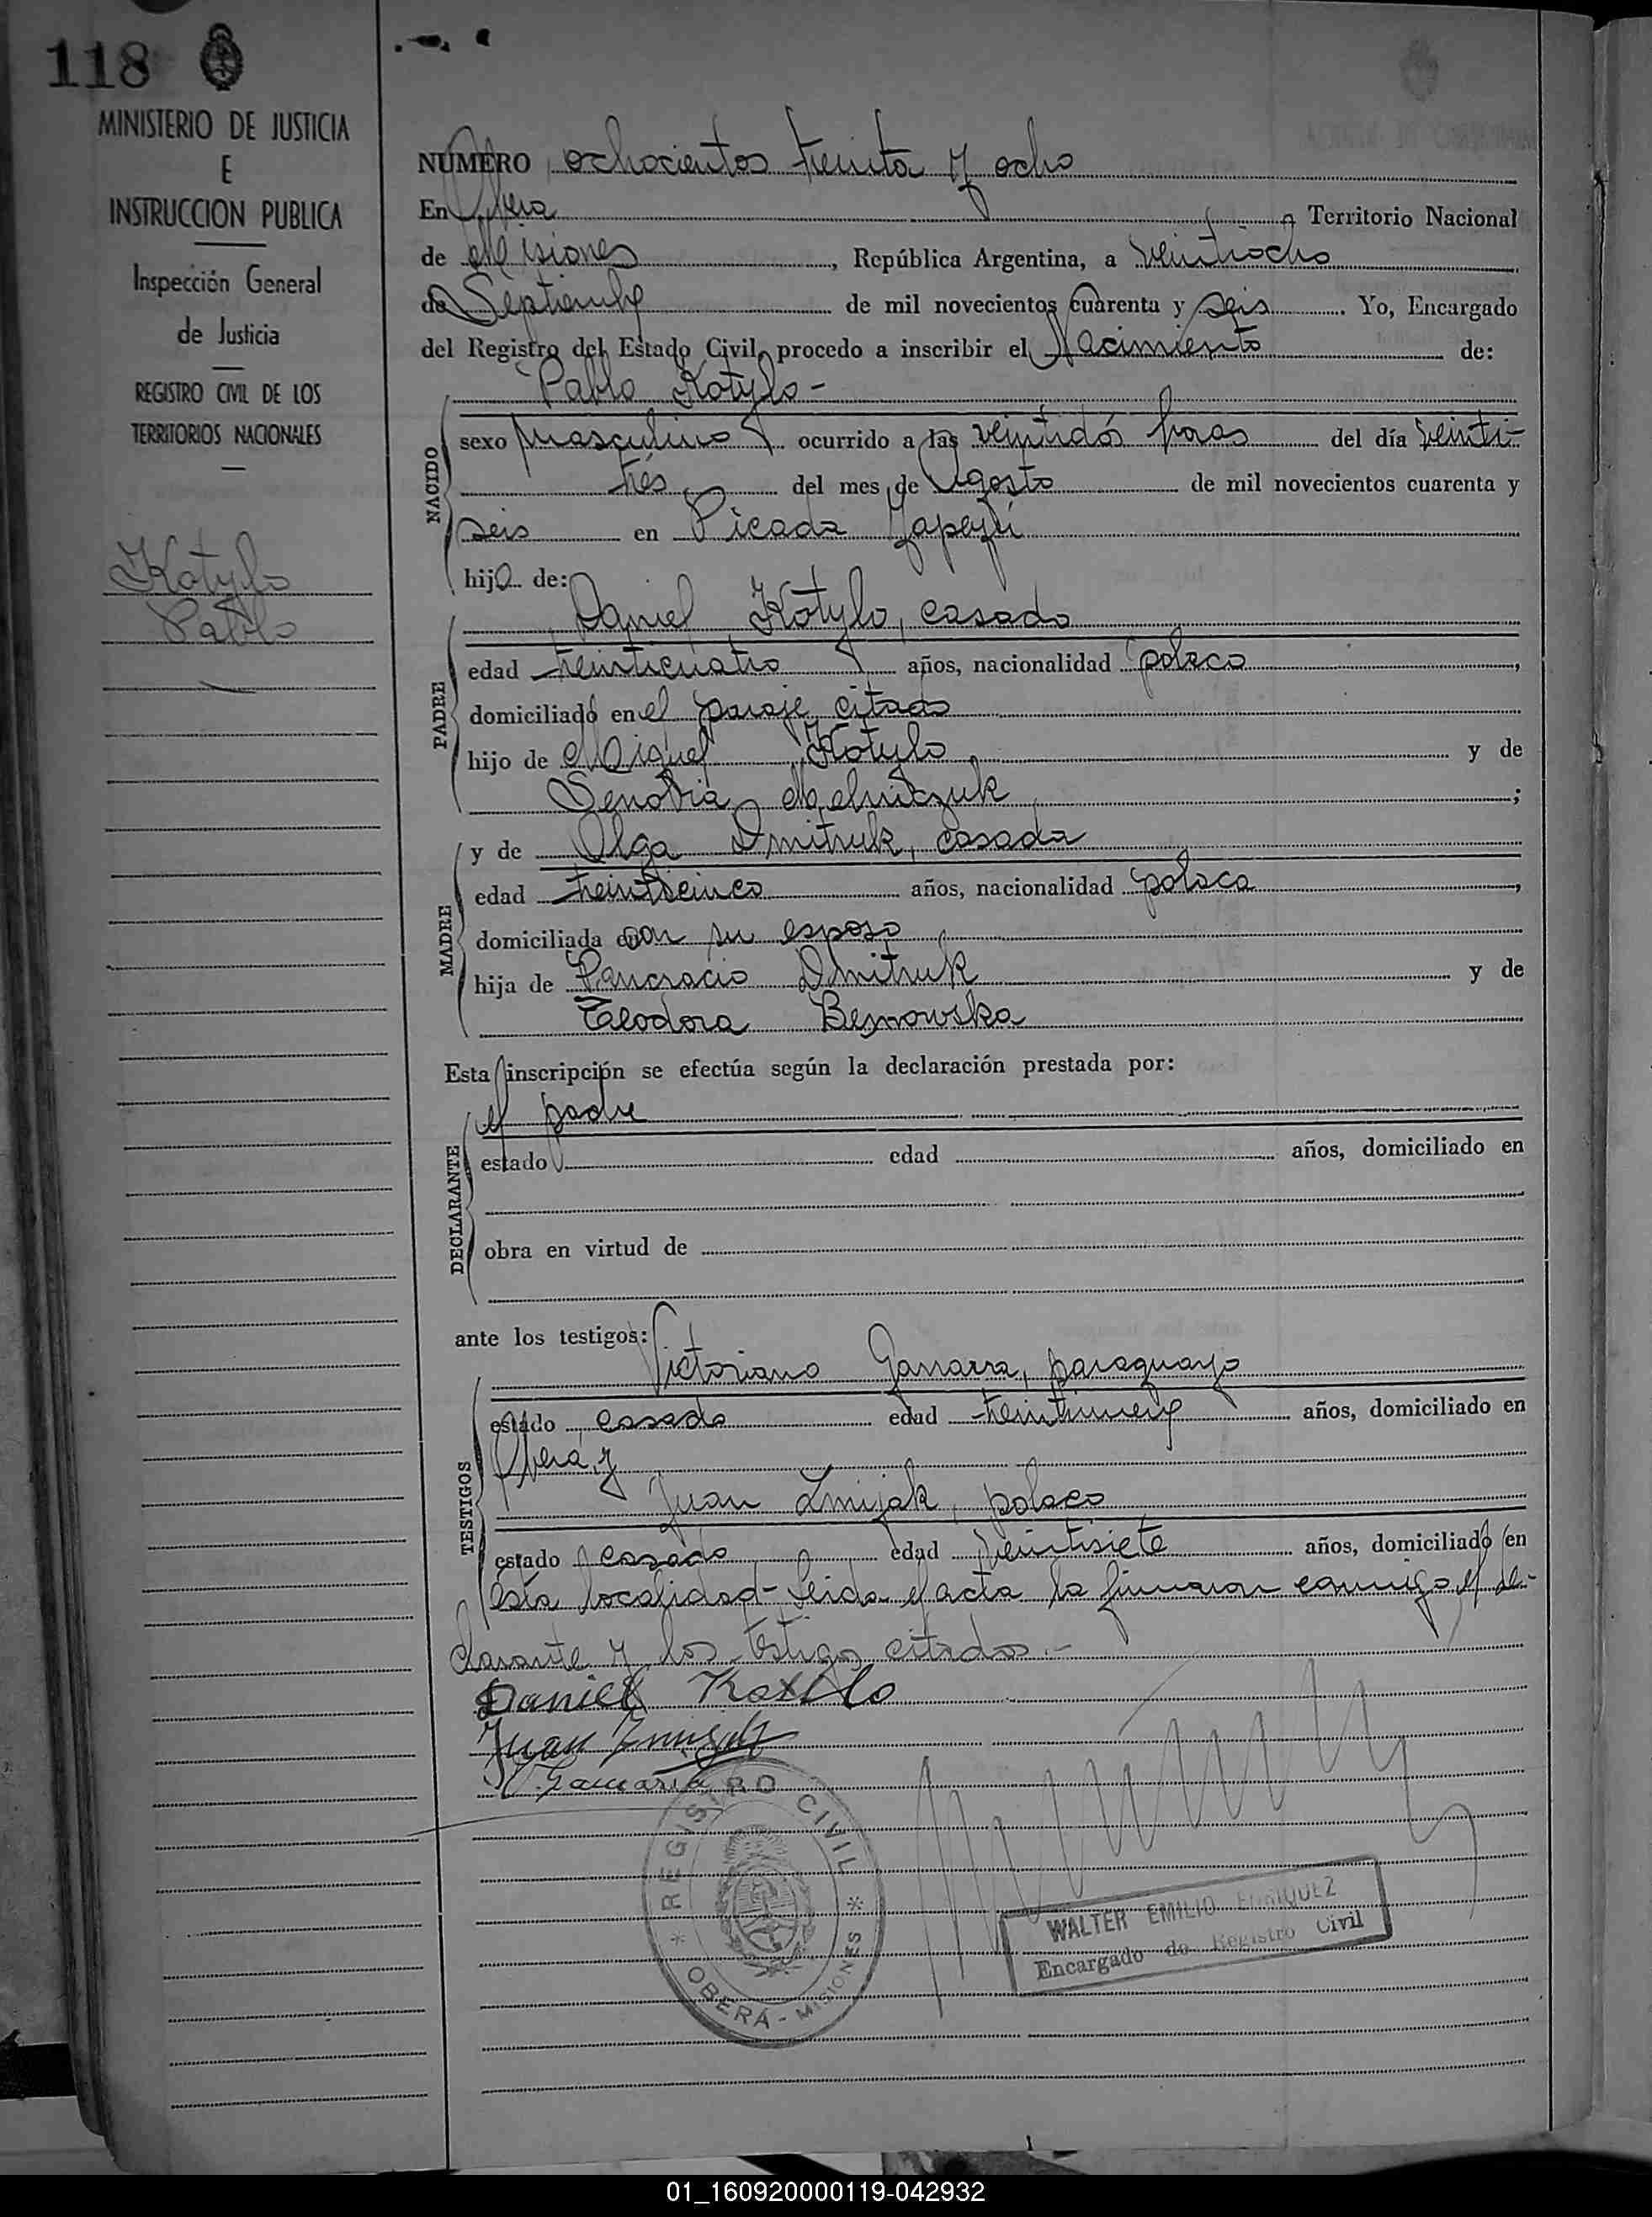 118
MINISTERIO DE JUSTICIA
E
INSTRUCCION PUBLICA
Inspección General
de Justicia
REGISTRO CIVIL DE LOS
TERRITORIOS NACIONALES
Kotylo
Pablo
NUMERO ochocientos treinta y ocho
En Obera Territorio Nacional
de Misiones, República Argentina, a veintiocho
de Septiembre de mil novecientos cuarenta y seis. Yo, Encargado
del Registro del Estado Civil, procedo a inscribir el Nacimiento de:
Pablo Kotylo-
NACIDO
sexo masculino ocurrido a las veintidós horas del día veinti-
trés del mes de Agosto de mil novecientos cuarenta y
seis en Picada Yapeyú
hijo de:
PADRE
Daniel Kotylo, casado
edad treinticuatro años, nacionalidad polaco,
domiciliado en el paraje citado
hijo de Miguel Kotylo y de
Senobia Melniczuk;
MADRE
y de Olga Dmitruk, casada
edad treinticinco años, nacionalidad polaca,
domiciliada con su esposo
hija de Pancracio Dmitruk y de
Teodora
Esta inscripción se efectúa según la declaración prestada por:
DECLARANTE
el padre
estado edad años, domiciliado en
obra en virtud de
ante los testigos:
TESTIGOS
Victoriano paraguayo
estado casado edad treintinueve años, domiciliado en
Obera, y
Juan Zmijak, polaco
estado casado edad veintisiete años, domiciliado en
esta localidad- Leida el acta la firmaron conmigo el de-
clarante y los testigos citados.-
Daniel Kotylo
Juan Zmijak
REGISTRO CIVIL
OBERÁ - MISIONES
WALTER EMILIO ENRIQUEZ
Encargado de Registro Civil
01_160920000119-042932